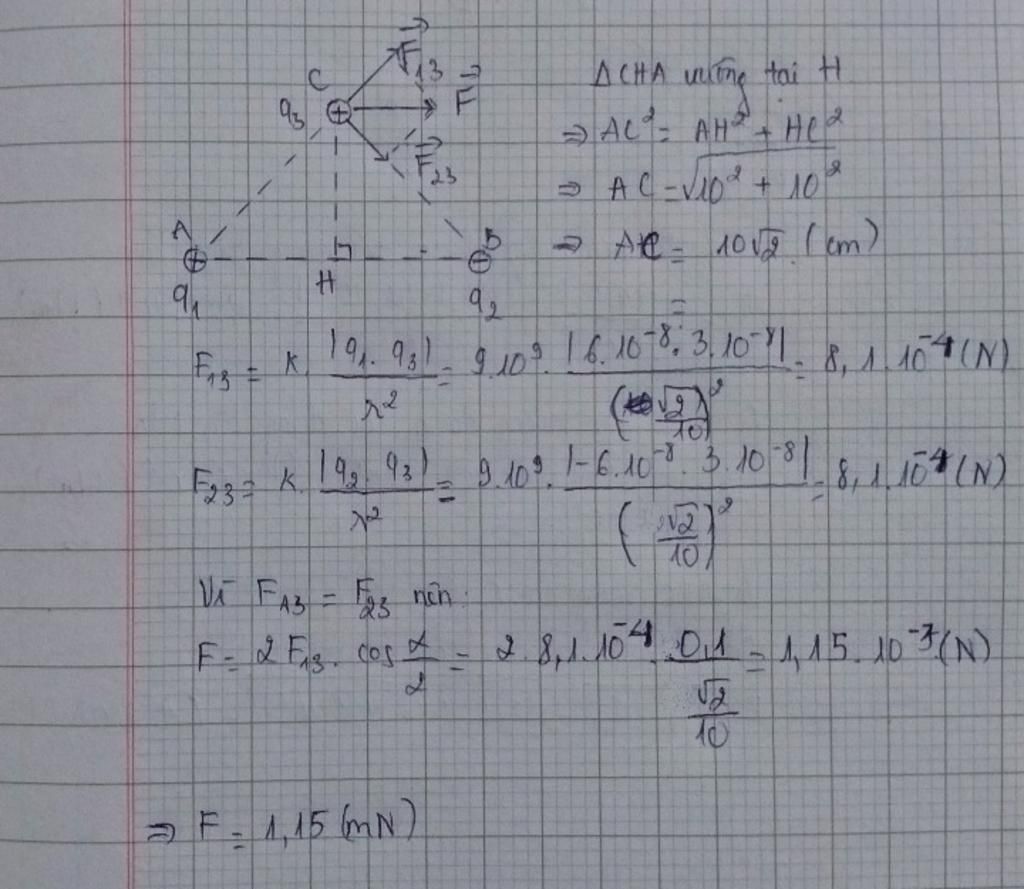 F⃗₁₃
C
q₃
F⃗
F⃗₂₃
A
B
H
q₁
q₂
ΔCHA vuông tại H
⇒ AC² = AH² + HC²
⇒ AC = √(10² + 10²)
⇒ AC = 10√2 (cm)
F₁₃ = k. |q₁. q₃| / r² = 9.10⁹. |6.10⁻⁸. 3.10⁻⁸| / (√2/10)² = 8,1.10⁻⁴ (N)
F₂₃ = k. |q₂. q₃| / r² = 9.10⁹. |-6.10⁻⁸. 3.10⁻⁸| / (√2/10)² = 8,1.10⁻⁴ (N)
Vì F₁₃ = F₂₃ nên:
F = 2F₁₃. cos α/2 = 2. 8,1.10⁻⁴. 0,1 / (√2/10) = 1,15.10⁻³ (N)
⇒ F = 1,15 (mN)